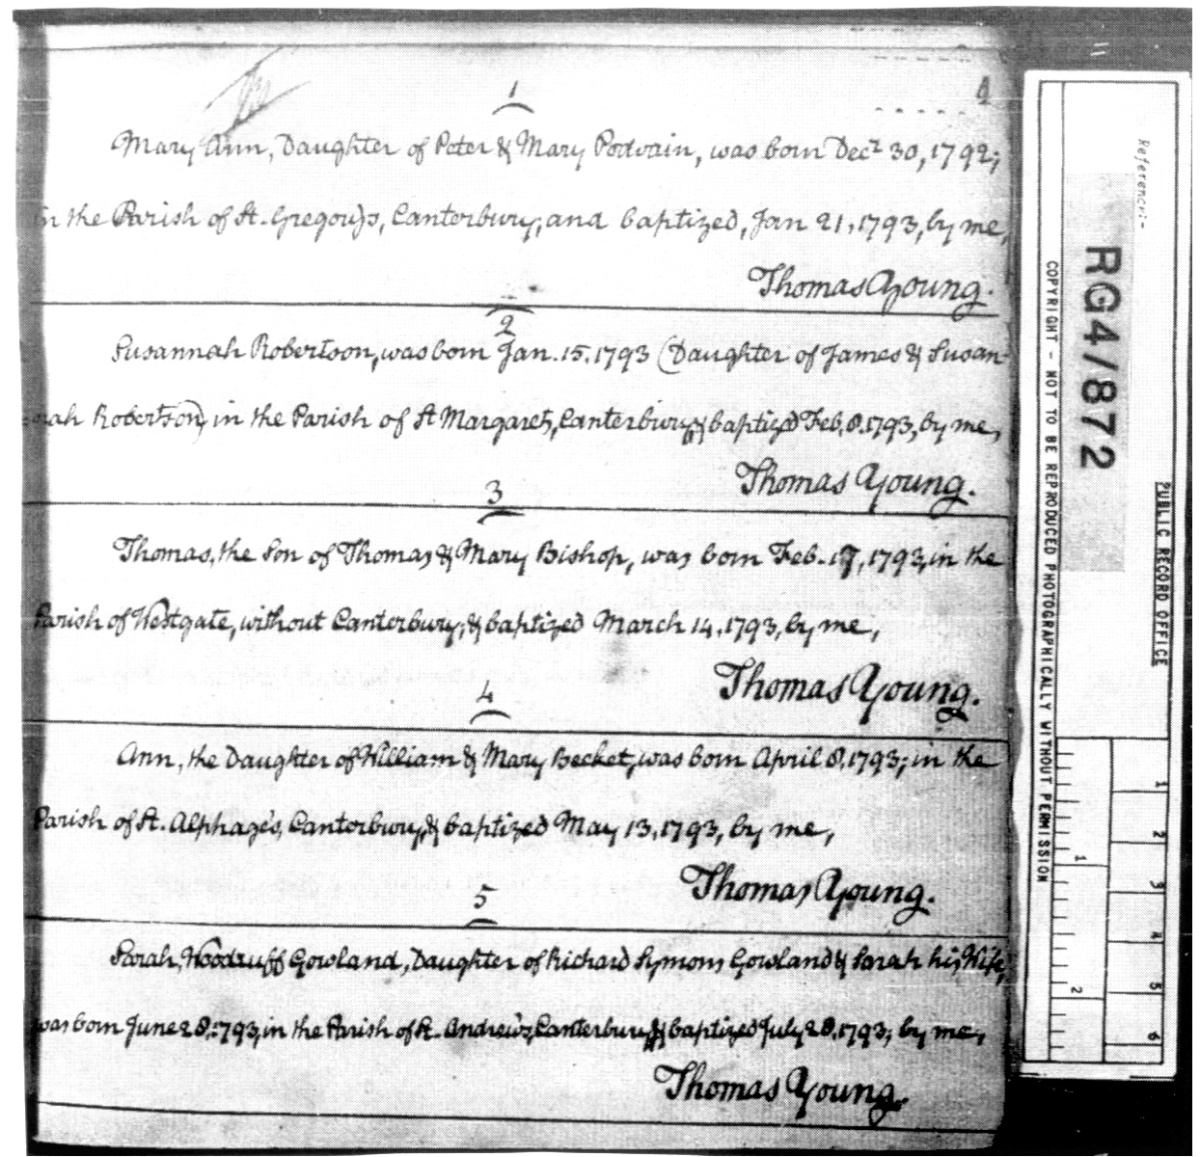 4
1
Mary Ann, Daughter of Peter & Mary Podvain, was born Decr 30, 1792;
in the Parish of St. Gregory's, Canterbury; and baptized, Jan 21, 1793, by me,
Thomas Young.
2
Susannah Robertson, was born Jan. 15. 1793 (Daughter of James & Susan-
nah Robertson) in the Parish of St Margaret, Canterbury, & baptized Feb. 8. 1793, by me,
Thomas Young.
3
Thomas, the Son of Thomas & Mary Bishop, was born Feb. 17, 1793, in the
Parish of Westgate, without Canterbury; & baptized March 14, 1793, by me,
Thomas Young.
4
Ann, the Daughter of William & Mary Becket, was born April 8, 1793; in the
Parish of St. Alphage's, Canterbury, & baptized May 13, 1793, by me,
Thomas Young.
5
Sarah, Woodruff Gowland, Daughter of Richard Symons Gowland & Sarah his Wife,
was born June 28, 1793, in the Parish of St. Andrew's, Canterbury, & baptized July 28, 1793; by me,
Thomas Young.
Reference:-
RG4/872
PUBLIC RECORD OFFICE
COPYRIGHT - NOT TO BE REPRODUCED PHOTOGRAPHICALLY WITHOUT PERMISSION
1 2 3 4 5 6
1 2